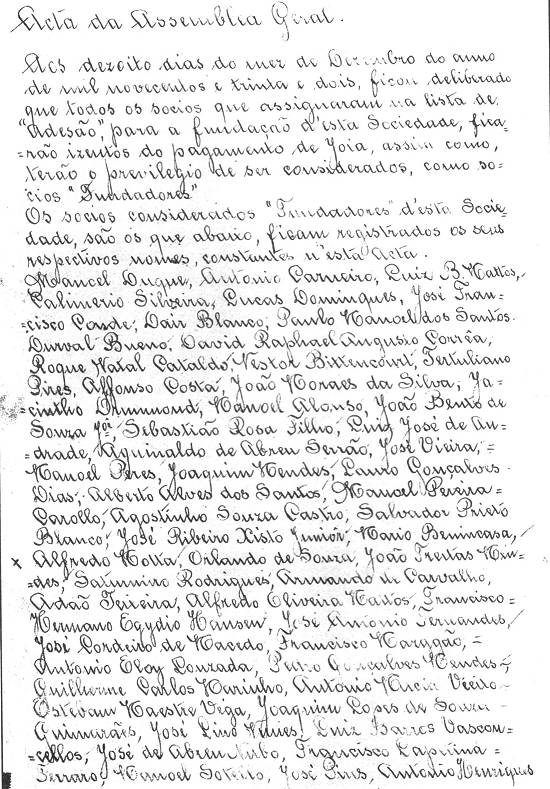 Acta da Assembléa Geral.
Aos dezoito dias do mez de Dezembro do anno
de mil novecentos e trinta e dois, ficou deliberado
que todos os socios que assignaram na lista de
"Adesão", para a fundação d'esta Sociedade, fica-
=rão izentos do pagamento de Joia, assim como,
terão o previlegio de ser considerados, como so-
cios "Fundadores"
Os socios considerados "Fundadores" d'esta Socie-
dade, são os que abaixo, ficam registrados os seus
respectivos nomes, constantes n'esta Acta.
Manoel Duque, Antonio Carneiro, Luiz B. Mattos,
Calimerio Silveira, Lucas Domingues, José Fran-
=cisco Conde, Dair Blanco, Paulo Manoel dos Santos.
Durval Bueno, David Raphael Augusto Corrêa,
Roque Natal Cataldo, Nestor Bittencourt, Tertuliano
Pires, Affonso Costa, João Moraes da Silva, Ja-
=cintho Drummond, Manoel Alonso, João Bento de
Souza, Sebastião Rosa Filho, Luiz José de An-
drade, Aguinaldo de Abreu Serrão, José Vieira,
Manoel Peres, Joaquim Mendes, Lauro Gonçalves
Dias, Alberto Alves dos Santos, Manoel Pereira
Carollo, Agostinho Souza Castro, Salvador Prieto
Blanco, José Ribeiro Xisto Junior, Mario Benincasa,
x Alfredo Motta, Orlando de Souza, João Freitas Men-
=des, Saturnino Rodrigues, Armando de Carvalho,
Adão Teixeira, Alfredo Oliveira Mattos, Francisco=
Hermano Egydio Hansen, José Antonio Fernandes,
José Cordeiro de Macedo, Francisco =
Antonio Eloy Louzada, Pedro Gonçalves Mendes,
Guilherme Carlos Marinho, Antonio
Estevam Maestre Vega, Joaquim Lopes de Souza
Guimarães, José Lino Nunes, Luiz Barros Vascon-
=cellos, José de Abreu, Francisco
Ferraro, Manoel Sotello, José Pires, Antonio Henriques